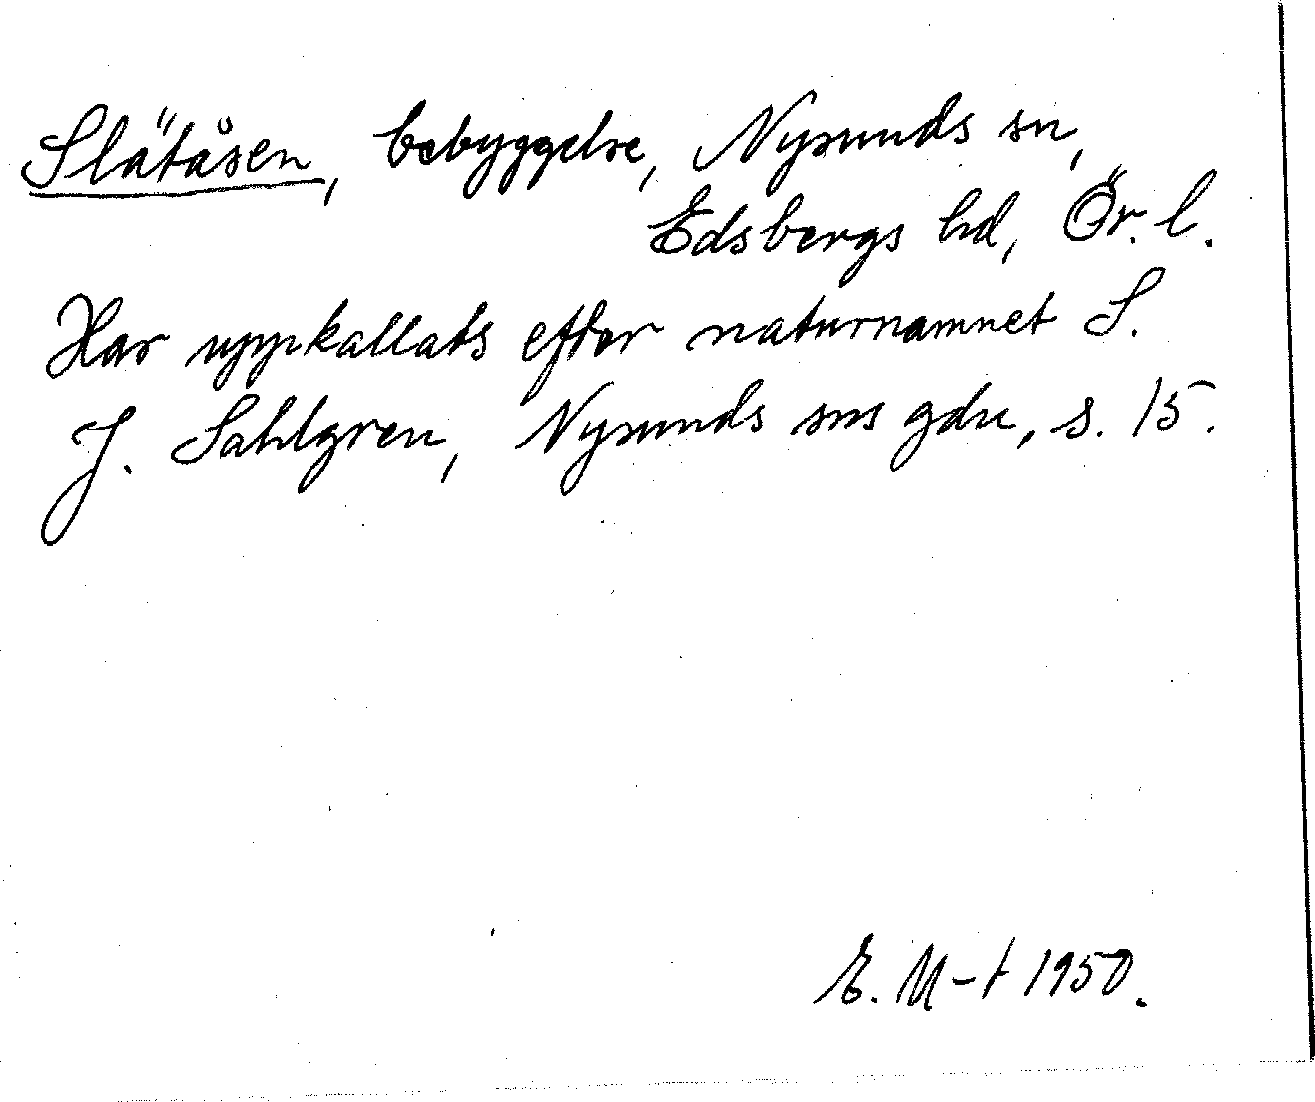 Slätåsen, bebyggelse, Nysunds sn,
Edsbergs hd, Ör. l.
Har uppkallats efter naturnamnet S.
J. Sahlgren, Nysunds sns gdn, s. 15.
E. M-t 1950.